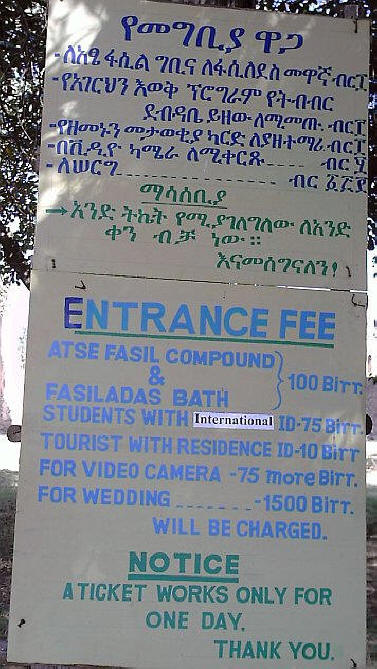 የመግቢያ ዋጋ
-ለአፄ ፋሲል ግቢና ለፋሲለደስ መዋኛ ብር፲
-የአገርህን እወቅ ፕሮግራም የትብብር
ደብዳቤ ይዘው ለሚመጡ. ብር፲
-የዘመኑን መታወቂያ ካርድ ለያዘ ተማሪ. ብር፲
-በቪዲዮ ካሜራ ለሚቀርጹ---- ብር
-ለሠርግ---------------- ብር
ማሳሰቢያ
→አንድ ትኬት የሚያገለግለው ለአንድ
ቀን ብቻ ነው።
እናመሰግናለን!
ENTRANCE FEE
ATSE FASIL COMPOUND
&
FASILADAS BATH } 100 Birr.
STUDENTS WITH International ID-75 Birr.
TOURIST WITH RESIDENCE ID-10 Birr
FOR VIDEO CAMERA -75 more Birr.
FOR WEDDING _______-1500 Birr.
WILL BE CHARGED.
NOTICE
A TICKET WORKS ONLY FOR
ONE DAY.
THANK YOU.